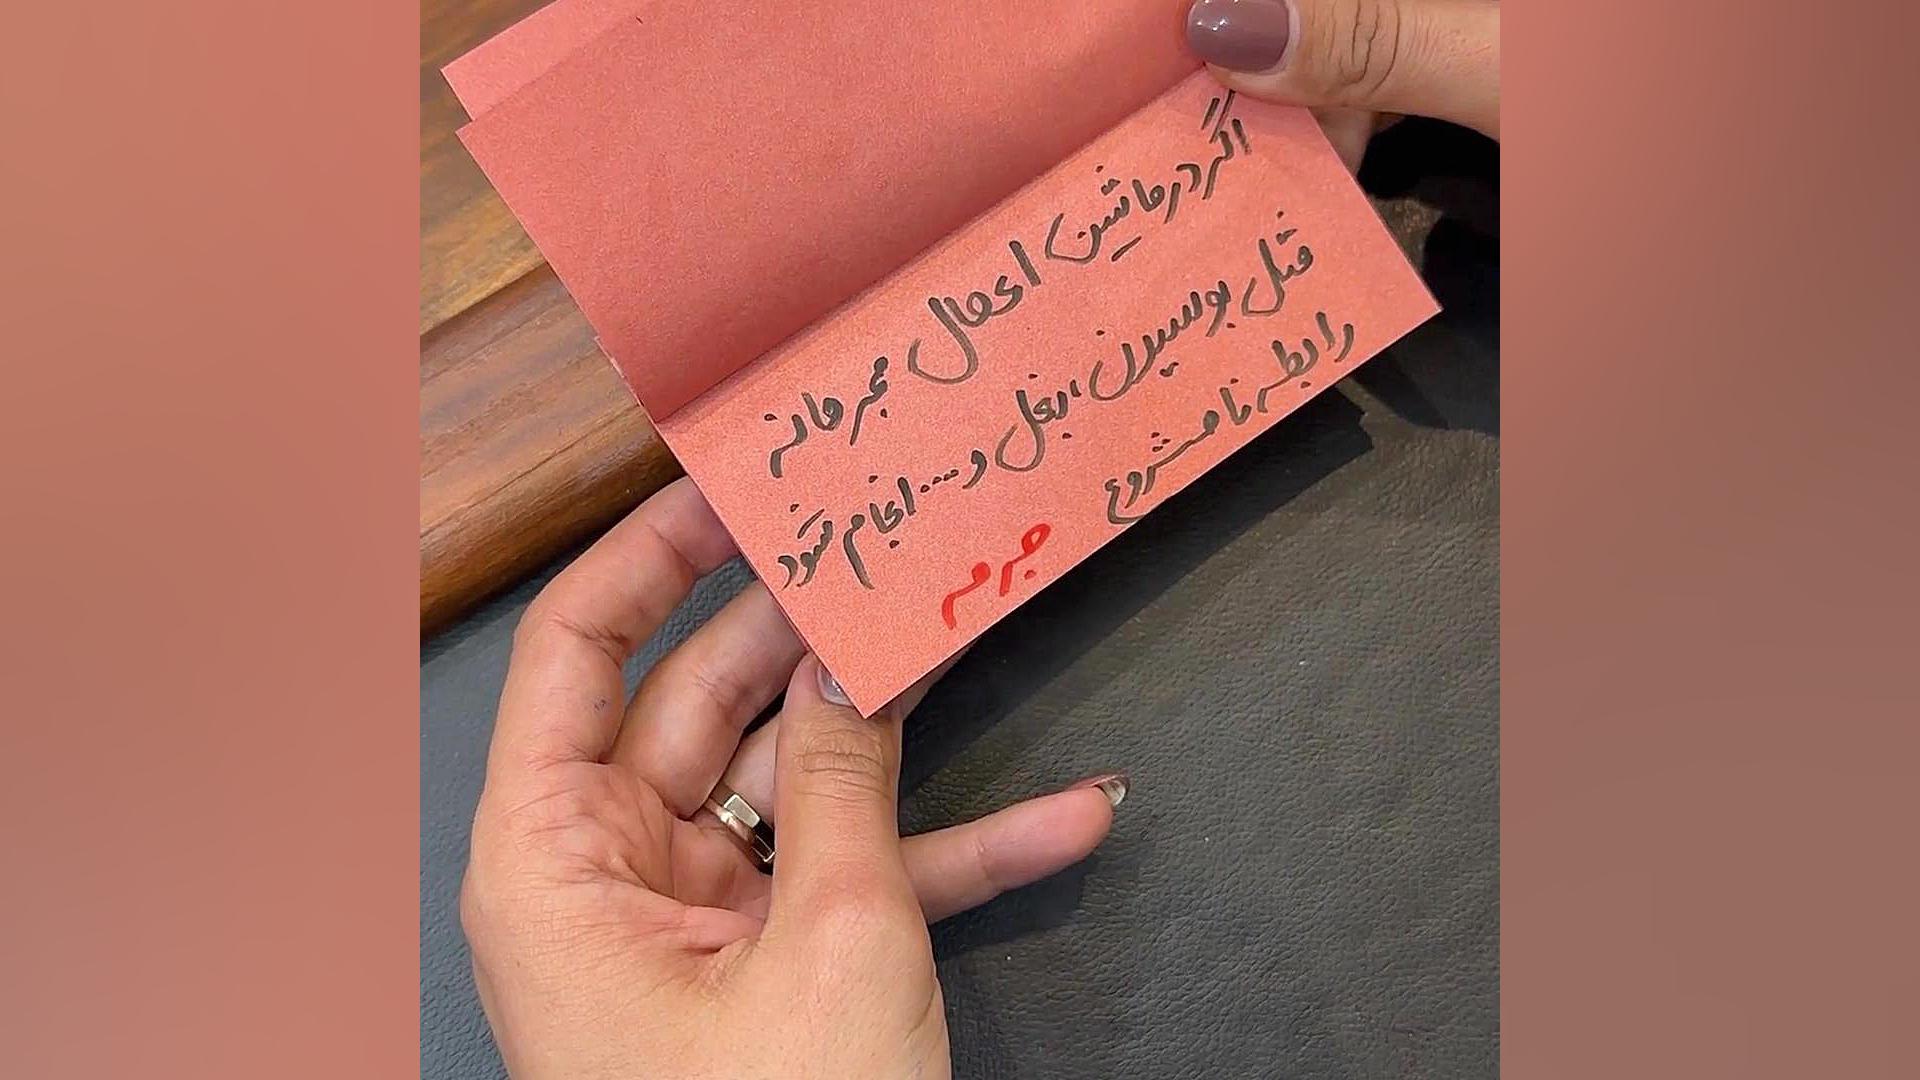 اگر در ماشین اعمال مجرمانه
مثل بوسیدن، بغل و... انجام شود
رابطه نامشروع
جرم